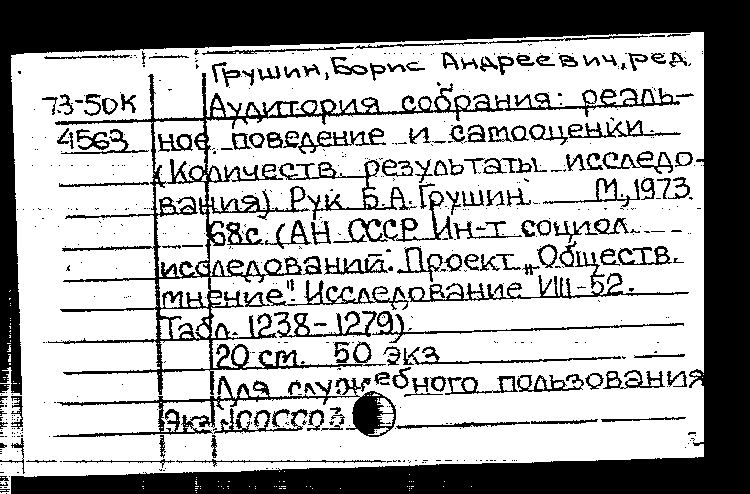 Грушин, Борис Андреевич, ред.
73-50к Аудитория собрания: реаль-
4563 ное поведение и самооценки.
(Количеств. результаты исследо-
вания). Рук. Б.А. Грушин. М., 1973
68с. (АН СССР. Ин-т социол.
исследований. Проект „Обществ.
мнение". Исследование VIII-52.
Табл. 1238-1279).
20 ст. 50 экз
Для служебного пользования
Экз. №000003